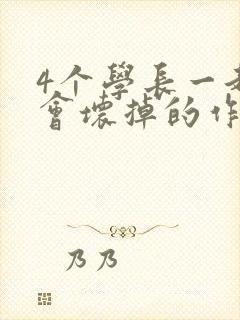 4个學長一起
會壞掉的作
乃乃